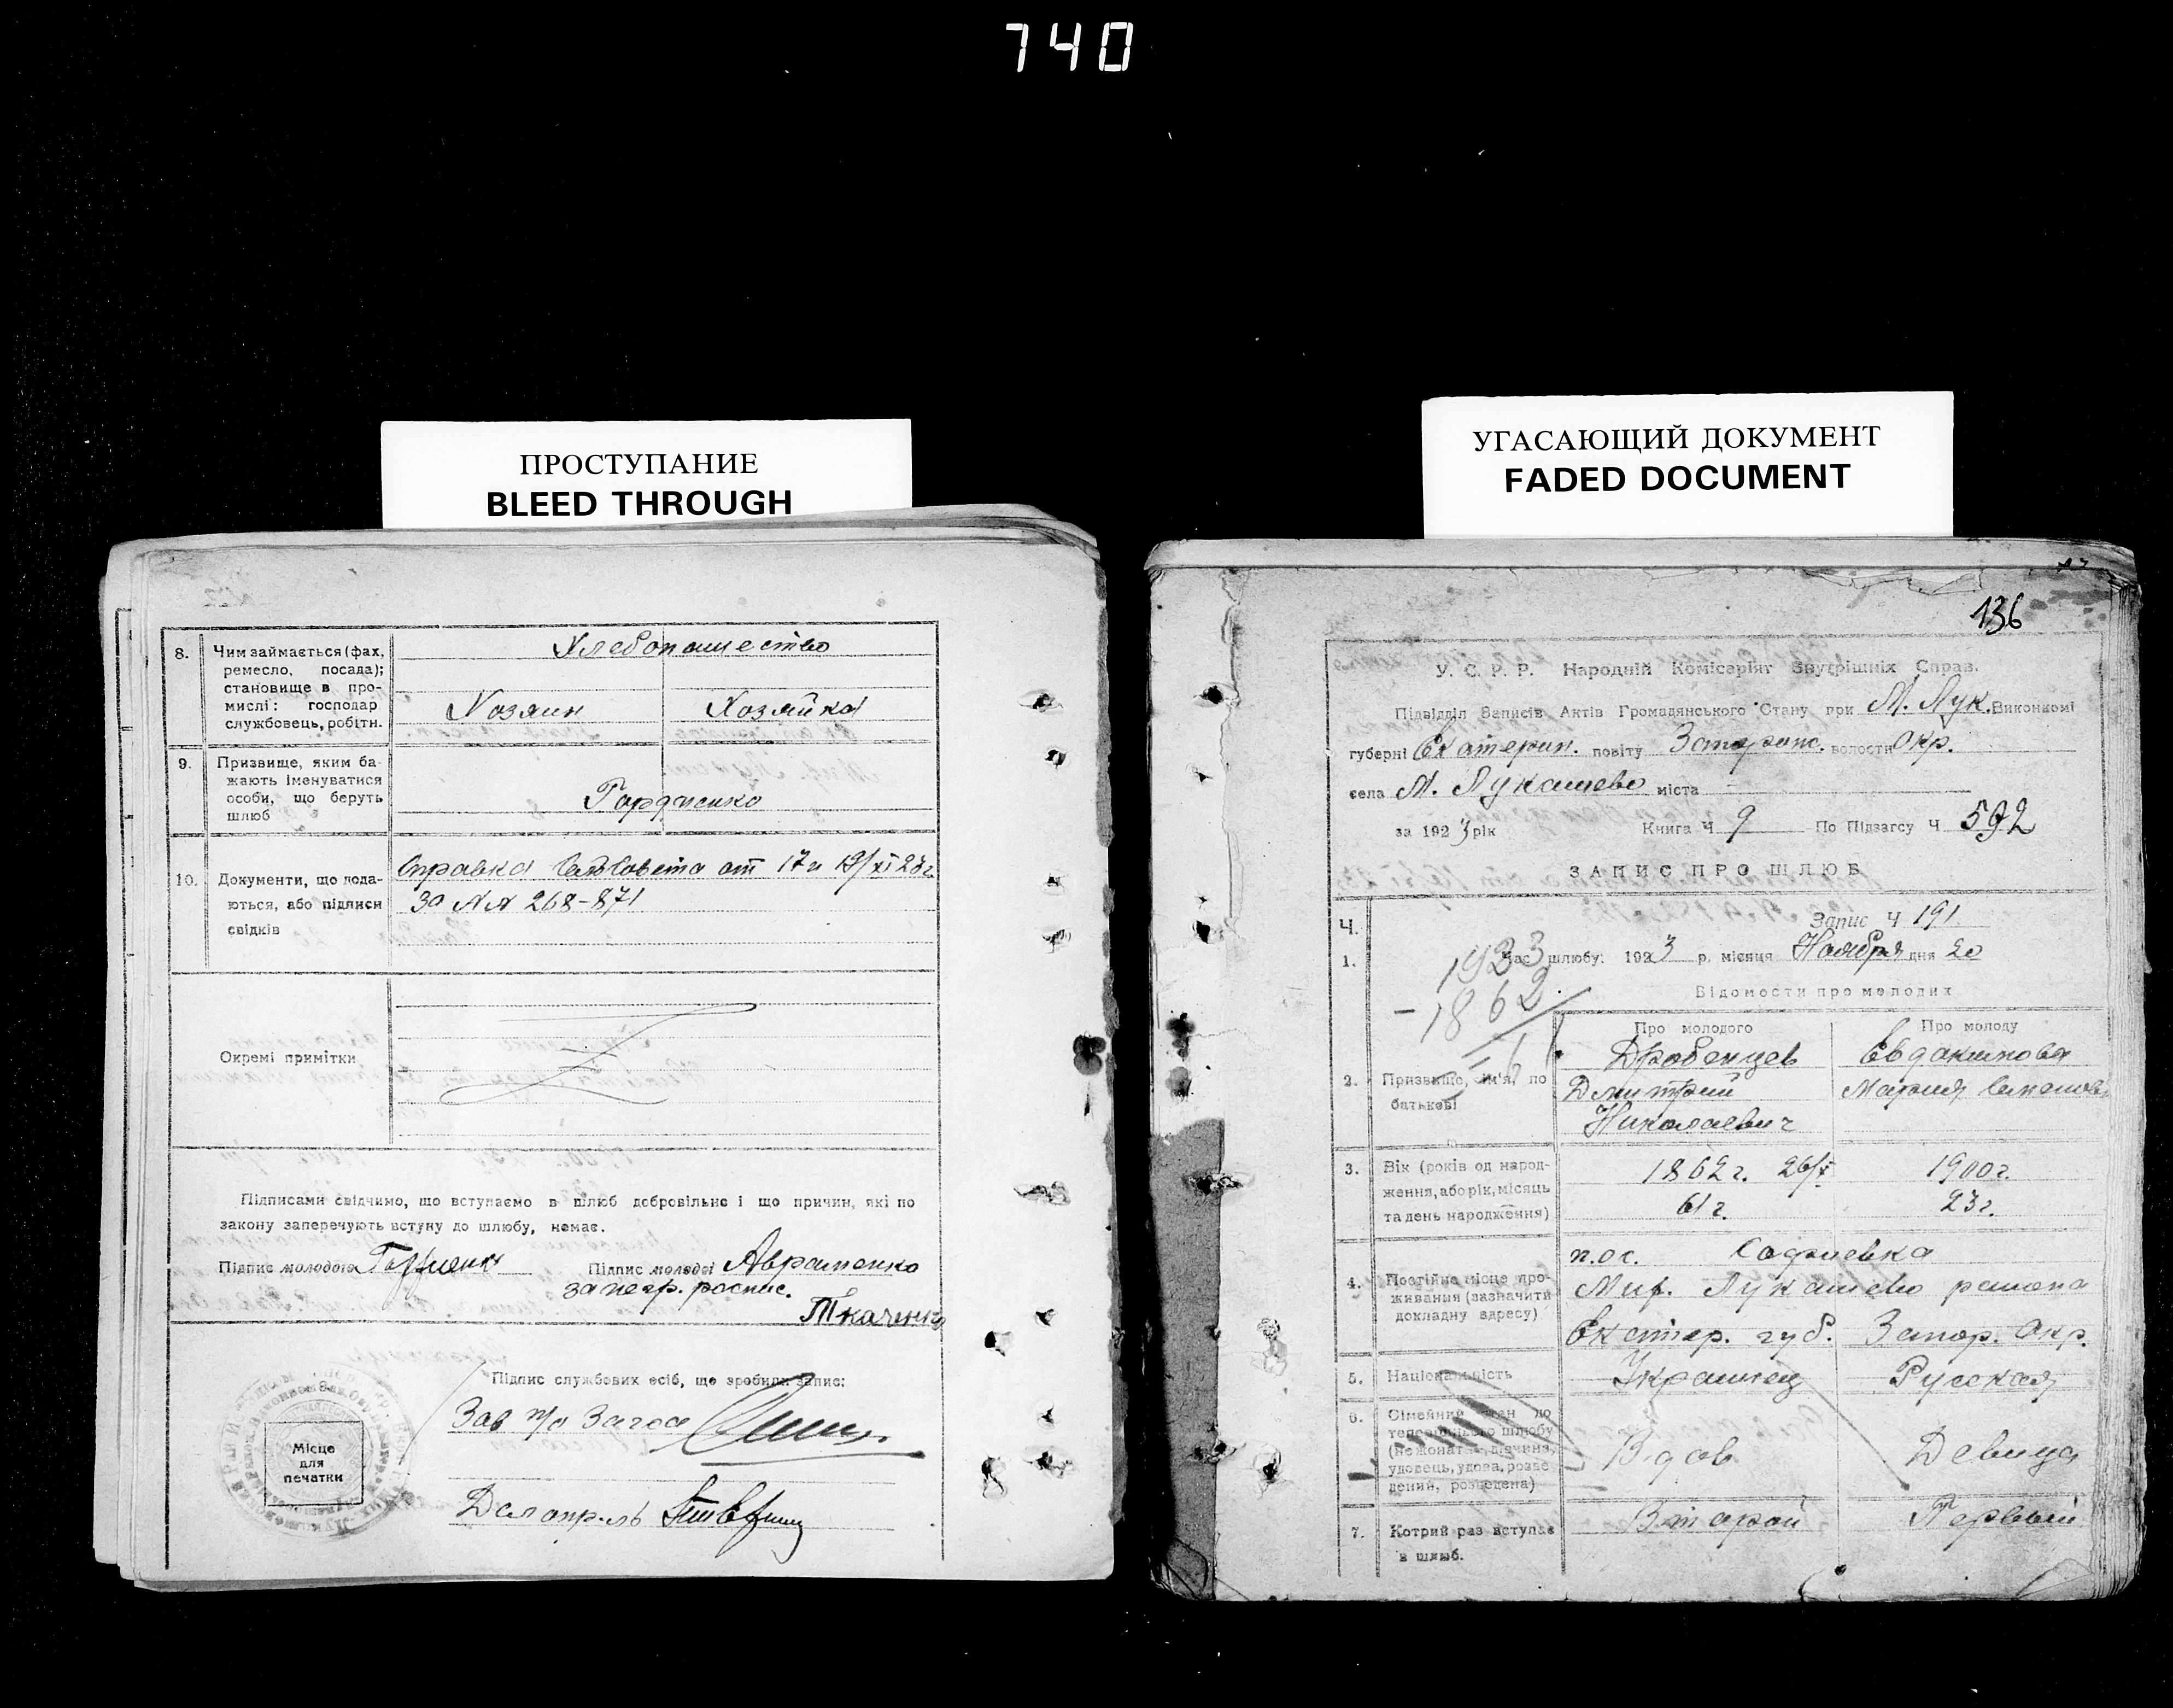 740
ПРОСТУПАНИЕ
BLEED THROUGH
8. Чим займається (фах, ремесло, посада); становище в промислі: господар службовець, робітн.
Хлебопашество
Хозяин Хозяйка
9. Призвище, яким бажають іменуватися особи, що беруть шлюб
Гордиенко
10. Документи, що додаються, або підписи свідків
Справка СельСовета от 17 и 19/XI 23г.
за NN 268-871
Окремі примітки
Підписами свідчимо, що вступаємо в шлюб добровільно і що причин, які по
закону заперечують вступу до шлюбу, немає.
Підпис молодого Гордиенко Підпис молодої Авраменко
за негр. роспис.
Ткаченко
Підпис службових осіб, що зробили запис:
Зав п/о Загса
Делопр-ль
Місце
для
печатки
УГАСАЮЩИЙ ДОКУМЕНТ
FADED DOCUMENT
136
У. С. Р. Р. Народній Комісаріят Внутрішніх Справ.
Підвідділ Записів Актів Громадянського Стану при М. Лук. Виконкомі
губерні Екатерин. повіту Запорож. волости Окр.
села М. Лукашево міста
за 1923 рік Книга Ч 9 По Підзагсу Ч 592
ЗАПИС ПРО ШЛЮБ
Ч. Запис Ч 191
1. Час шлюбу: 1923 р. місяця Ноября дня 20
1923
- 1862
61
Відомости про молодих
Про молодого Про молоду
2. Призвище, ім'я, по батькові
Дробенцев Евдакимова
Дмитрий Мария Семенов
Николаевич
3. Вік (років од народження, або рік, місяць та день народження)
1862г. 26/X 1900г.
61г. 23г.
4. Постійне місце проживання (зазначити докладну адресу)
пос. Софиевка
Мих. Лукашево района
Екатер. губ. Запор. Окр.
5. Національність
Украинец Русская
6. Сімейний стан до теперішнього шлюбу (нежонатий, дівчина, удовець, удова, розведений, розведена)
Вдов Девица
7. Котрий раз вступає в шлюб.
Второй Первый